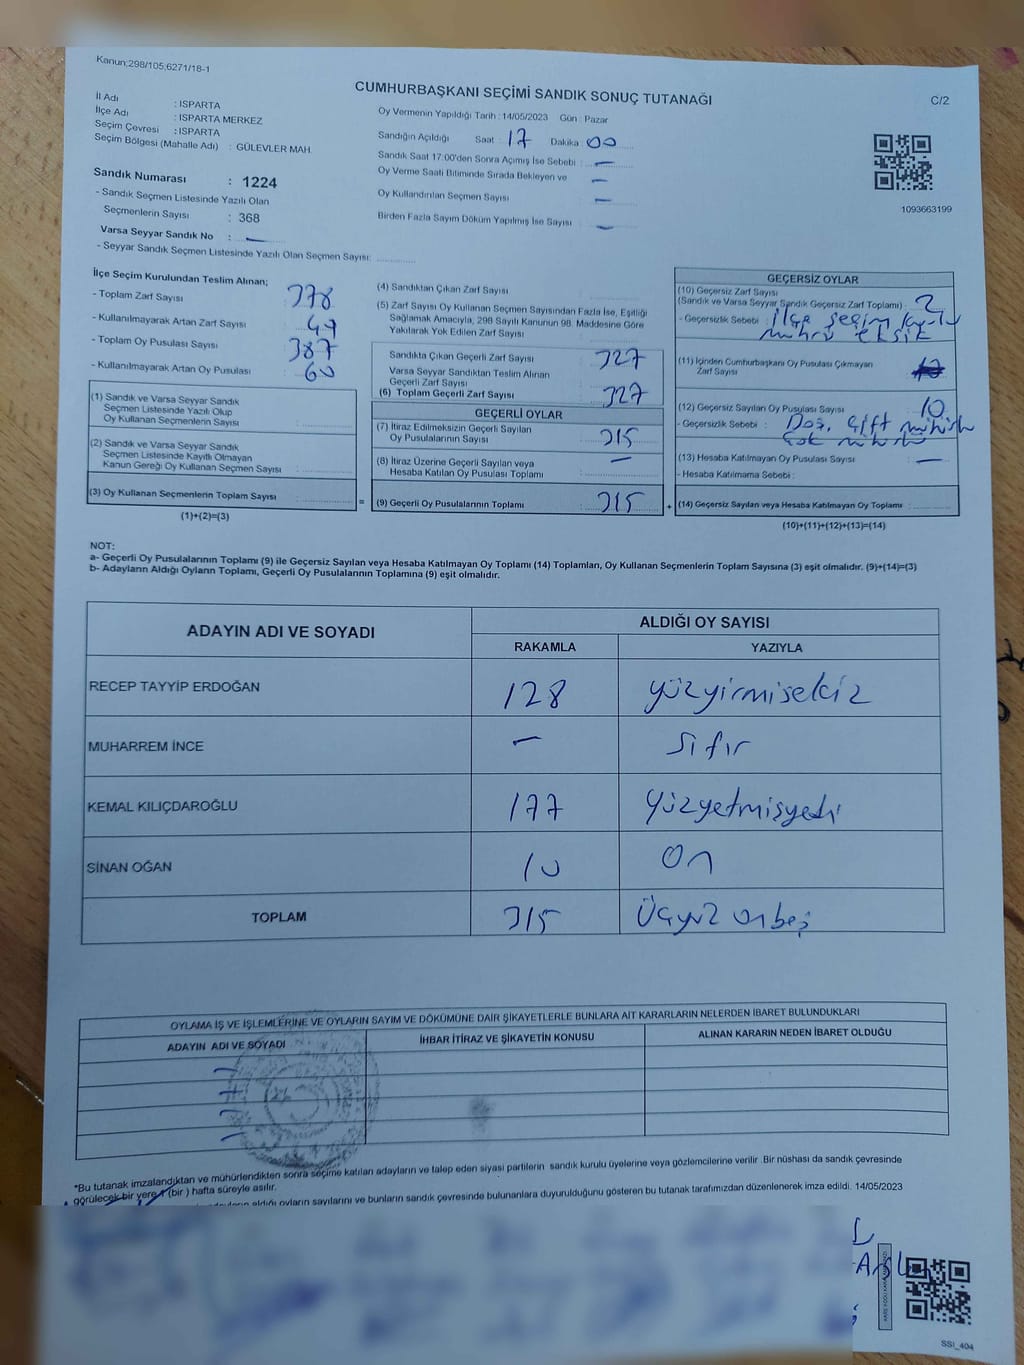 Kanun;298/105;6271/18-1
CUMHURBAŞKANI SEÇİMİ SANDIK SONUÇ TUTANAĞI
C/2
İl Adı : ISPARTA
İlçe Adı : ISPARTA MERKEZ
Seçim Çevresi : ISPARTA
Seçim Bölgesi (Mahalle Adı) : GÜLEVLER MAH.
Sandık Numarası : 1224
- Sandık Seçmen Listesinde Yazılı Olan
Seçmenlerin Sayısı : 368
Varsa Seyyar Sandık No : —
- Seyyar Sandık Seçmen Listesinde Yazılı Olan Seçmen Sayısı:
Oy Vermenin Yapıldığı Tarih : 14/05/2023 Gün : Pazar
Sandığın Açıldığı Saat : 17 Dakika : 00
Sandık Saat 17:00'den Sonra Açımış İse Sebebi : —
Oy Verme Saati Bitiminde Sırada Bekleyen ve —
Oy Kullandırılan Seçmen Sayısı —
Birden Fazla Sayım Döküm Yapılmış İse Sayısı : —
1093663199
İlçe Seçim Kurulundan Teslim Alınan;
- Toplam Zarf Sayısı : 378
- Kullanılmayarak Artan Zarf Sayısı : 49
- Toplam Oy Pusulası Sayısı : 387
- Kullanılmayarak Artan Oy Pusulası : 60
(1) Sandık ve Varsa Seyyar Sandık
Seçmen Listesinde Yazılı Olup
Oy Kullanan Seçmenlerin Sayısı :
(2) Sandık ve Varsa Seyyar Sandık
Seçmen Listesinde Kayıtlı Olmayan
Kanun Gereği Oy Kullanan Seçmen Sayısı :
(3) Oy Kullanan Seçmenlerin Toplam Sayısı : =
(1)+(2)=(3)
(4) Sandıktan Çıkan Zarf Sayısı :
(5) Zarf Sayısı Oy Kullanan Seçmen Sayısından Fazla İse, Eşitliği
Sağlamak Amacıyla, 298 Sayılı Kanunun 98. Maddesine Göre
Yakılarak Yok Edilen Zarf Sayısı :
Sandıkta Çıkan Geçerli Zarf Sayısı : 327
Varsa Seyyar Sandıktan Teslim Alınan
Geçerli Zarf Sayısı :
(6) Toplam Geçerli Zarf Sayısı : 327
GEÇERLİ OYLAR
(7) İtiraz Edilmeksizin Geçerli Sayılan
Oy Pusulalarının Sayısı : 315
(8) İtiraz Üzerine Geçerli Sayılan veya —
Hesaba Katılan Oy Pusulası Toplamı :
(9) Geçerli Oy Pusulalarının Toplamı : 315 +
GEÇERSİZ OYLAR
(10) Geçersiz Zarf Sayısı
(Sandık ve Varsa Seyyar Sandık Geçersiz Zarf Toplamı) : 2
- Geçersizlik Sebebi : İlçe seçim kurulu
mührü eksik
(11) İçinden Cumhurbaşkanı Oy Pusulası Çıkmayan
Zarf Sayısı :
(12) Geçersiz Sayılan Oy Pusulası Sayısı : 10
- Geçersizlik Sebebi : çift mühür
çok mühür
(13) Hesaba Katılmayan Oy Pusulası Sayısı : —
- Hesaba Katılmama Sebebi :
(14) Geçersiz Sayılan veya Hesaba Katılmayan Oy Toplamı :
(10)+(11)+(12)+(13)=(14)
NOT:
a- Geçerli Oy Pusulalarının Toplamı (9) ile Geçersiz Sayılan veya Hesaba Katılmayan Oy Toplamı (14) Toplamları, Oy Kullanan Seçmenlerin Toplam Sayısına (3) eşit olmalıdır. (9)+(14)=(3)
b- Adayların Aldığı Oyların Toplamı, Geçerli Oy Pusulalarının Toplamına (9) eşit olmalıdır.
ADAYIN ADI VE SOYADI ALDIĞI OY SAYISI
RAKAMLA YAZIYLA
RECEP TAYYİP ERDOĞAN 128 yüzyirmisekiz
MUHARREM İNCE — sıfır
KEMAL KILIÇDAROĞLU 177 yüzyetmişyedi
SİNAN OĞAN 10 On
TOPLAM 315 Üçyüz onbeş
OYLAMA İŞ VE İŞLEMLERİNE VE OYLARIN SAYIM VE DÖKÜMÜNE DAİR ŞİKAYETLERLE BUNLARA AİT KARARLARIN NELERDEN İBARET BULUNDUKLARI
ADAYIN ADI VE SOYADI İHBAR İTİRAZ VE ŞİKAYETİN KONUSU ALINAN KARARIN NEDEN İBARET OLDUĞU
*Bu tutanak imzalandıktan ve mühürlendikten sonra seçime katılan adayların ve talep eden siyasi partilerin sandık kurulu üyelerine veya gözlemcilerine verilir .Bir nüshası da sandık çevresinde
görülecek bir yere 1 (bir ) hafta süreyle asılır.
aldığı oyların sayılarını ve bunların sandık çevresinde bulunanlara duyurulduğunu gösteren bu tutanak tarafımızdan düzenlenerek imza edildi. 14/05/2023
SSI_404